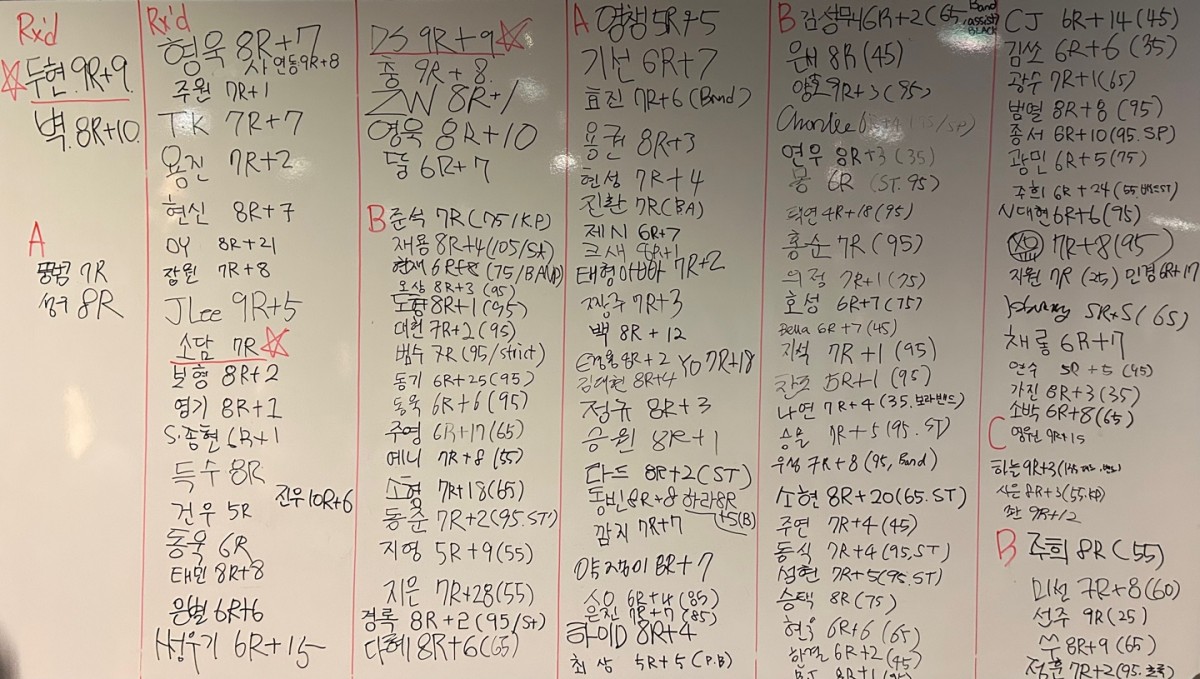 Rx'd
두현 9R+9
벽 8R+10
A
7R
성구 8R
Rx'd
형욱 8R+7
연동 9R+8
주원 7R+1
TK 7R+7
용진 7R+2
현신 8R+7
DY 8R+21
잠원 7R+8
JLee 9R+5
소담 7R
보형 8R+2
영기 8R+1
S.종현 6R+1
득수 8R
진우 10R+6
건우 5R
동욱 6R
태민 8R+8
은별 6R+6
6R+15
DS 9R+9
총 9R+8
ZW 8R+1
영욱 8R+10
뚤 6R+7
B
준석 7R (75/KP)
재용 8R+4 (105/SA)
현재 6R+8 (75/BAND)
오상 8R+3 (95)
도형 8R+1 (95)
대현 7R+2 (95)
범수 7R (95/strict)
동기 6R+25 (95)
동욱 6R+6 (95)
주영 6R+17 (65)
예니 7R+8 (55)
소형 7R+18 (65)
동준 7R+2 (95.ST)
지영 5R+9 (55)
지은 7R+28 (55)
경록 8R+2 (95/St)
다혜 8R+6 (65)
A
영생 5R+5
기선 6R+7
효진 7R+6 (Band)
용권 8R+3
현성 7R+4
진환 7R (BA)
제N 6R+7
크새 8R+1
태형아빠 7R+2
짱구 7R+3
백 8R+12
8R+2 YO 7R+18
김대현 8R+4
정규 8R+3
승원 8R+1
다드 8R+2 (ST)
동빈 8R+8 하라 8R+5 (B)
깜지 7R+7
8R+7
6R+4 (85)
은진 7R+7 (85)
하이D 8R+4
최상 5R+5 (P.B)
B
김성무 6R+2 (65 Band assist BLACK
은서 8R (45)
양호 9R+3 (95)
Charlee
연우 8R+3 (35)
몽 6R (ST.95)
택연 4R+18 (95)
홍순 7R (95)
의정 7R+1 (75)
효성 6R+7 (75)
Bella 6R+7 (45)
지석 7R+1 (95)
찬호 5R+1 (95)
나연 7R+4 (35.보라밴드)
승율 7R+5 (95.ST)
우성 7R+8 (95, Band)
소현 8R+20 (65.ST)
주연 7R+4 (45)
동식 7R+4 (95.ST)
섭현 7R+5 (95.ST)
승택 8R (75)
현욱 6R+6 (65)
한결 6R+2 (45)
8R+1
CJ 6R+14 (45)
김쏘 6R+6 (35)
광수 7R+1 (65)
범열 8R+8 (95)
종서 6R+10 (95.SP)
광민 6R+5 (75)
주희 6R+24 (55.밴드ST)
N대현 6R+6 (95)
7R+8 (95)
지원 7R (25) 민경 6R+17
5R+5 (65)
채롱 6R+7
연수 5R+5 (45)
가진 8R+3 (35)
소박 6R+8 (65)
C
영원 9R+15
하늘 9R+3
시은 8R+3 (55.KP)
9R+12
B
주희 8R (55)
미선 7R+8 (60)
선주 9R (25)
쑤 8R+9 (65)
정훈 7R+2 (95.초록)